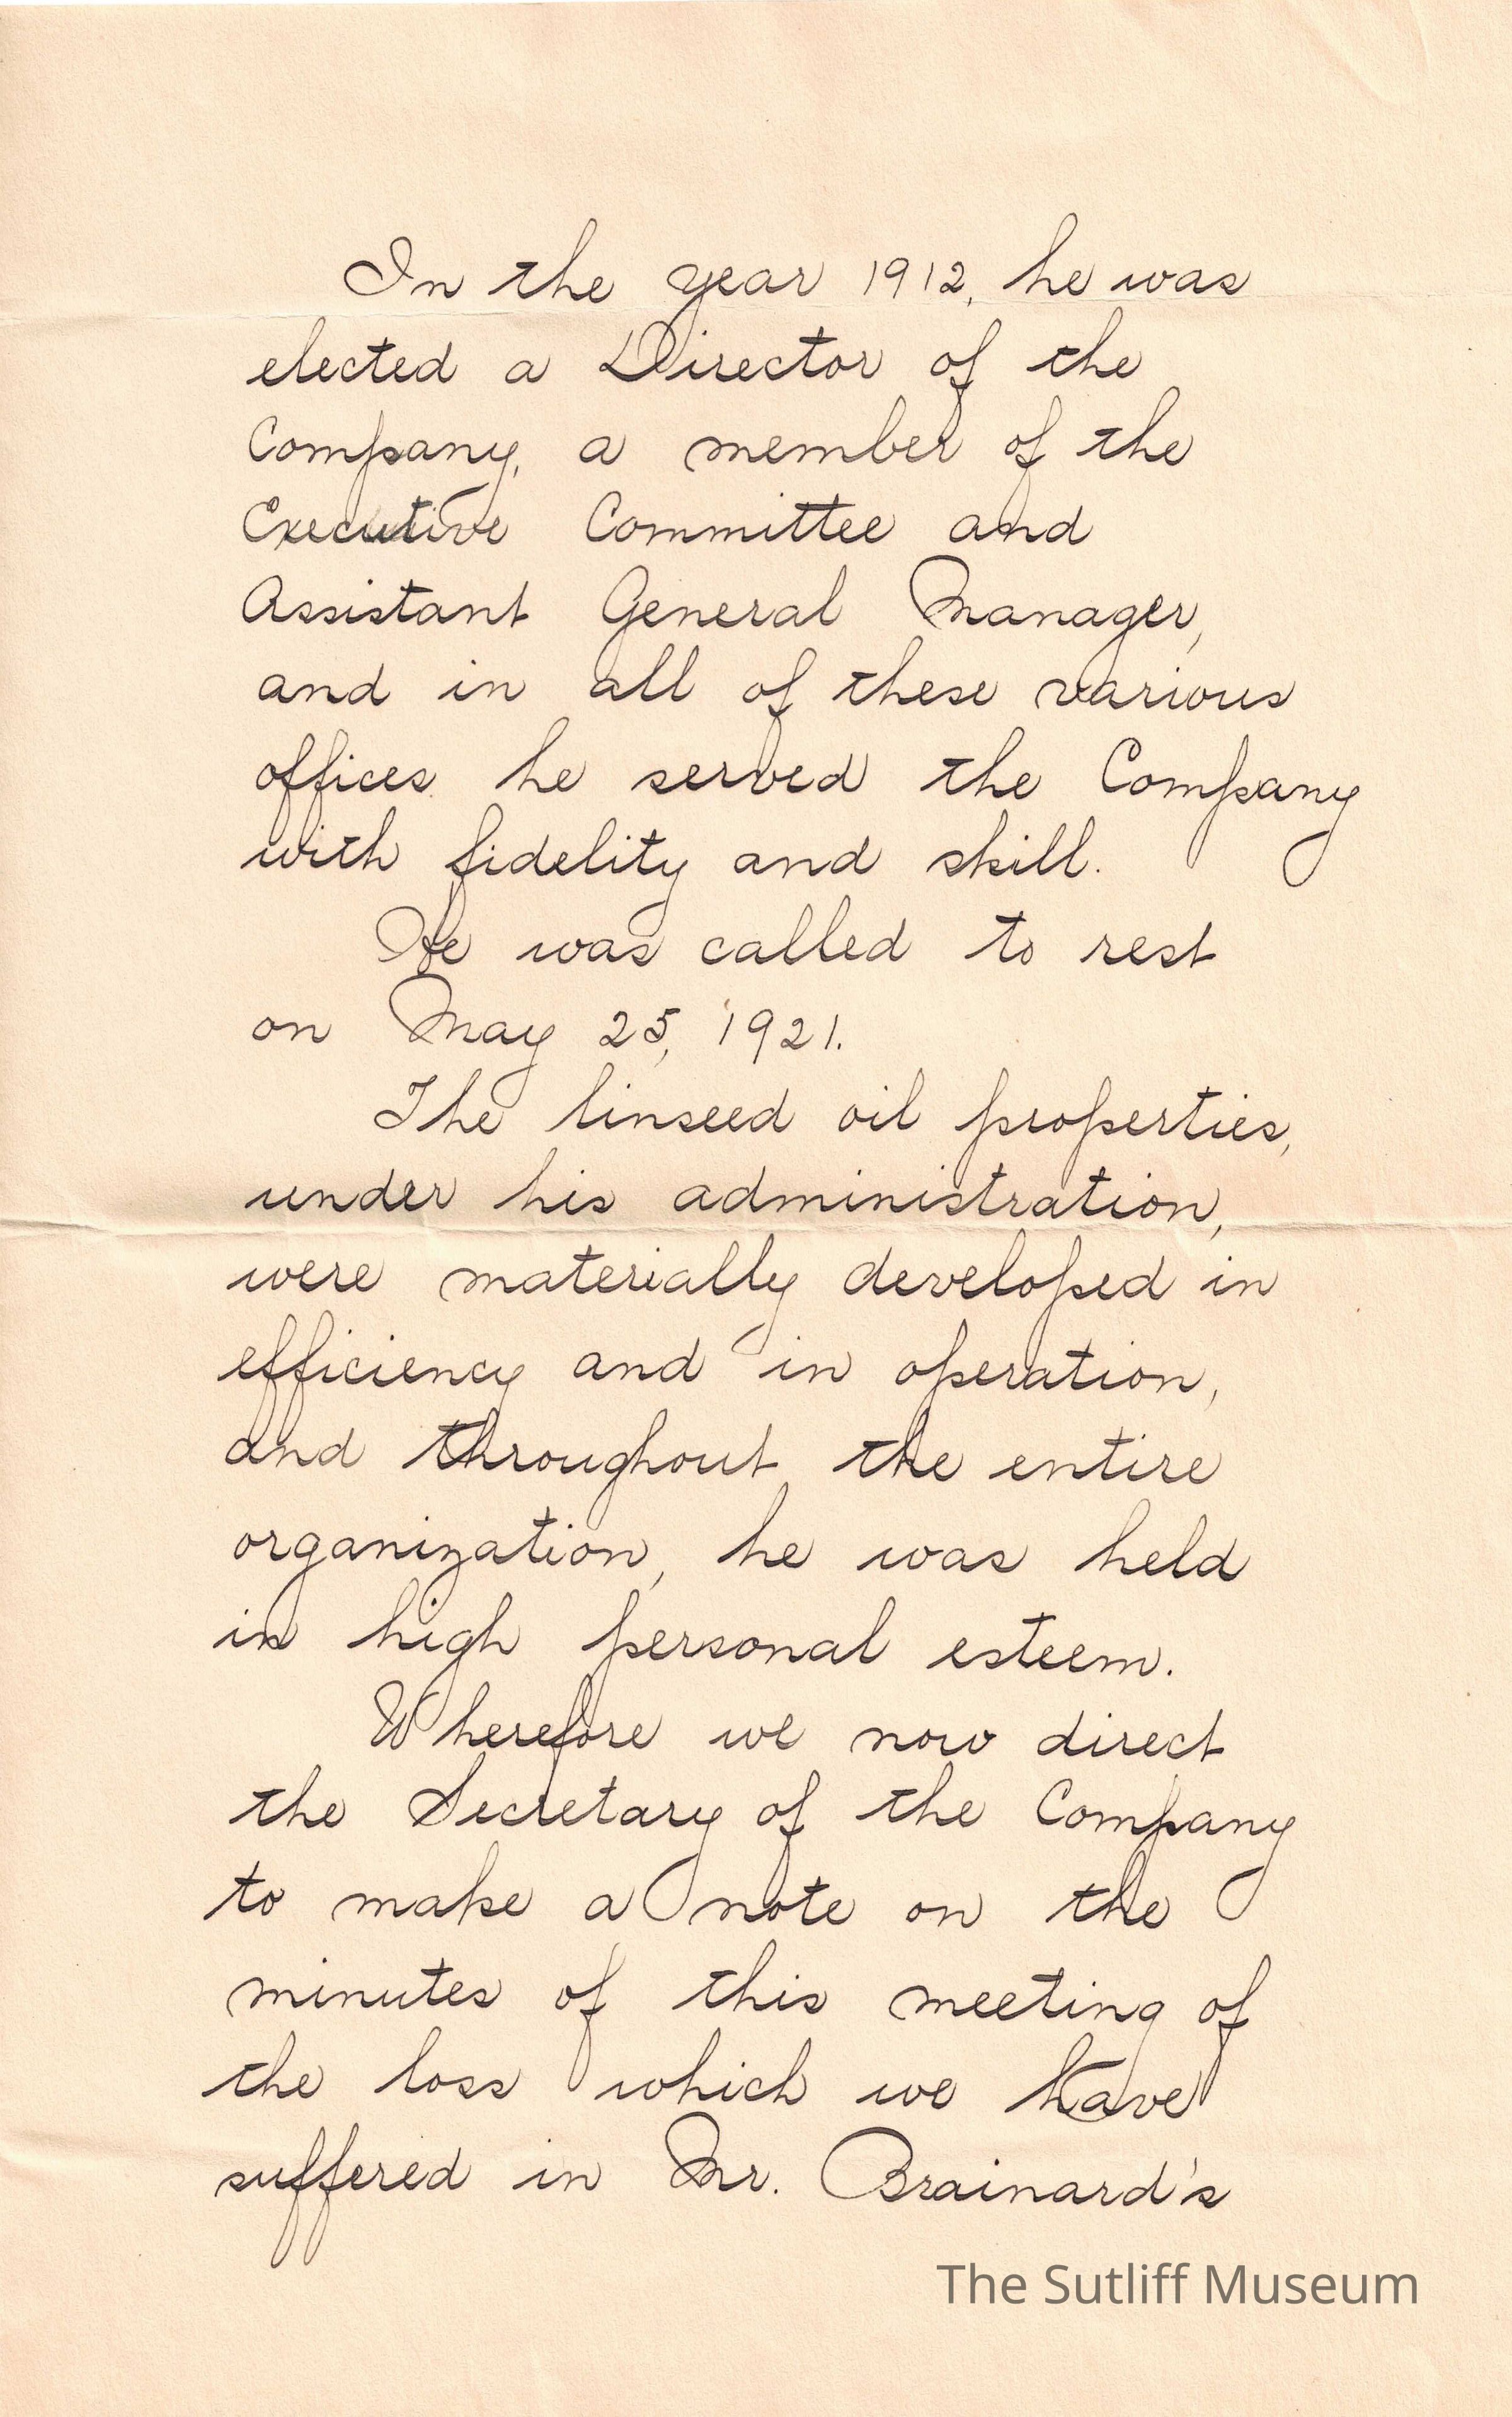 In the year 1912, he was
elected a Director of the
Company, a member of the
Executive Committee and
Assistant General Manager,
and in all of these various
offices he served the Company
with fidelity and skill.
He was called to rest
on May 25, 1921.
The linseed oil properties,
under his administration,
were materially developed in
efficiency and in operation,
and throughout the entire
organization, he was held
in high personal esteem.
Wherefore we now direct
the Secretary of the Company
to make a note on the
minutes of this meeting of
the loss which we have
suffered in Mr. Brainard's
The Sutliff Museum